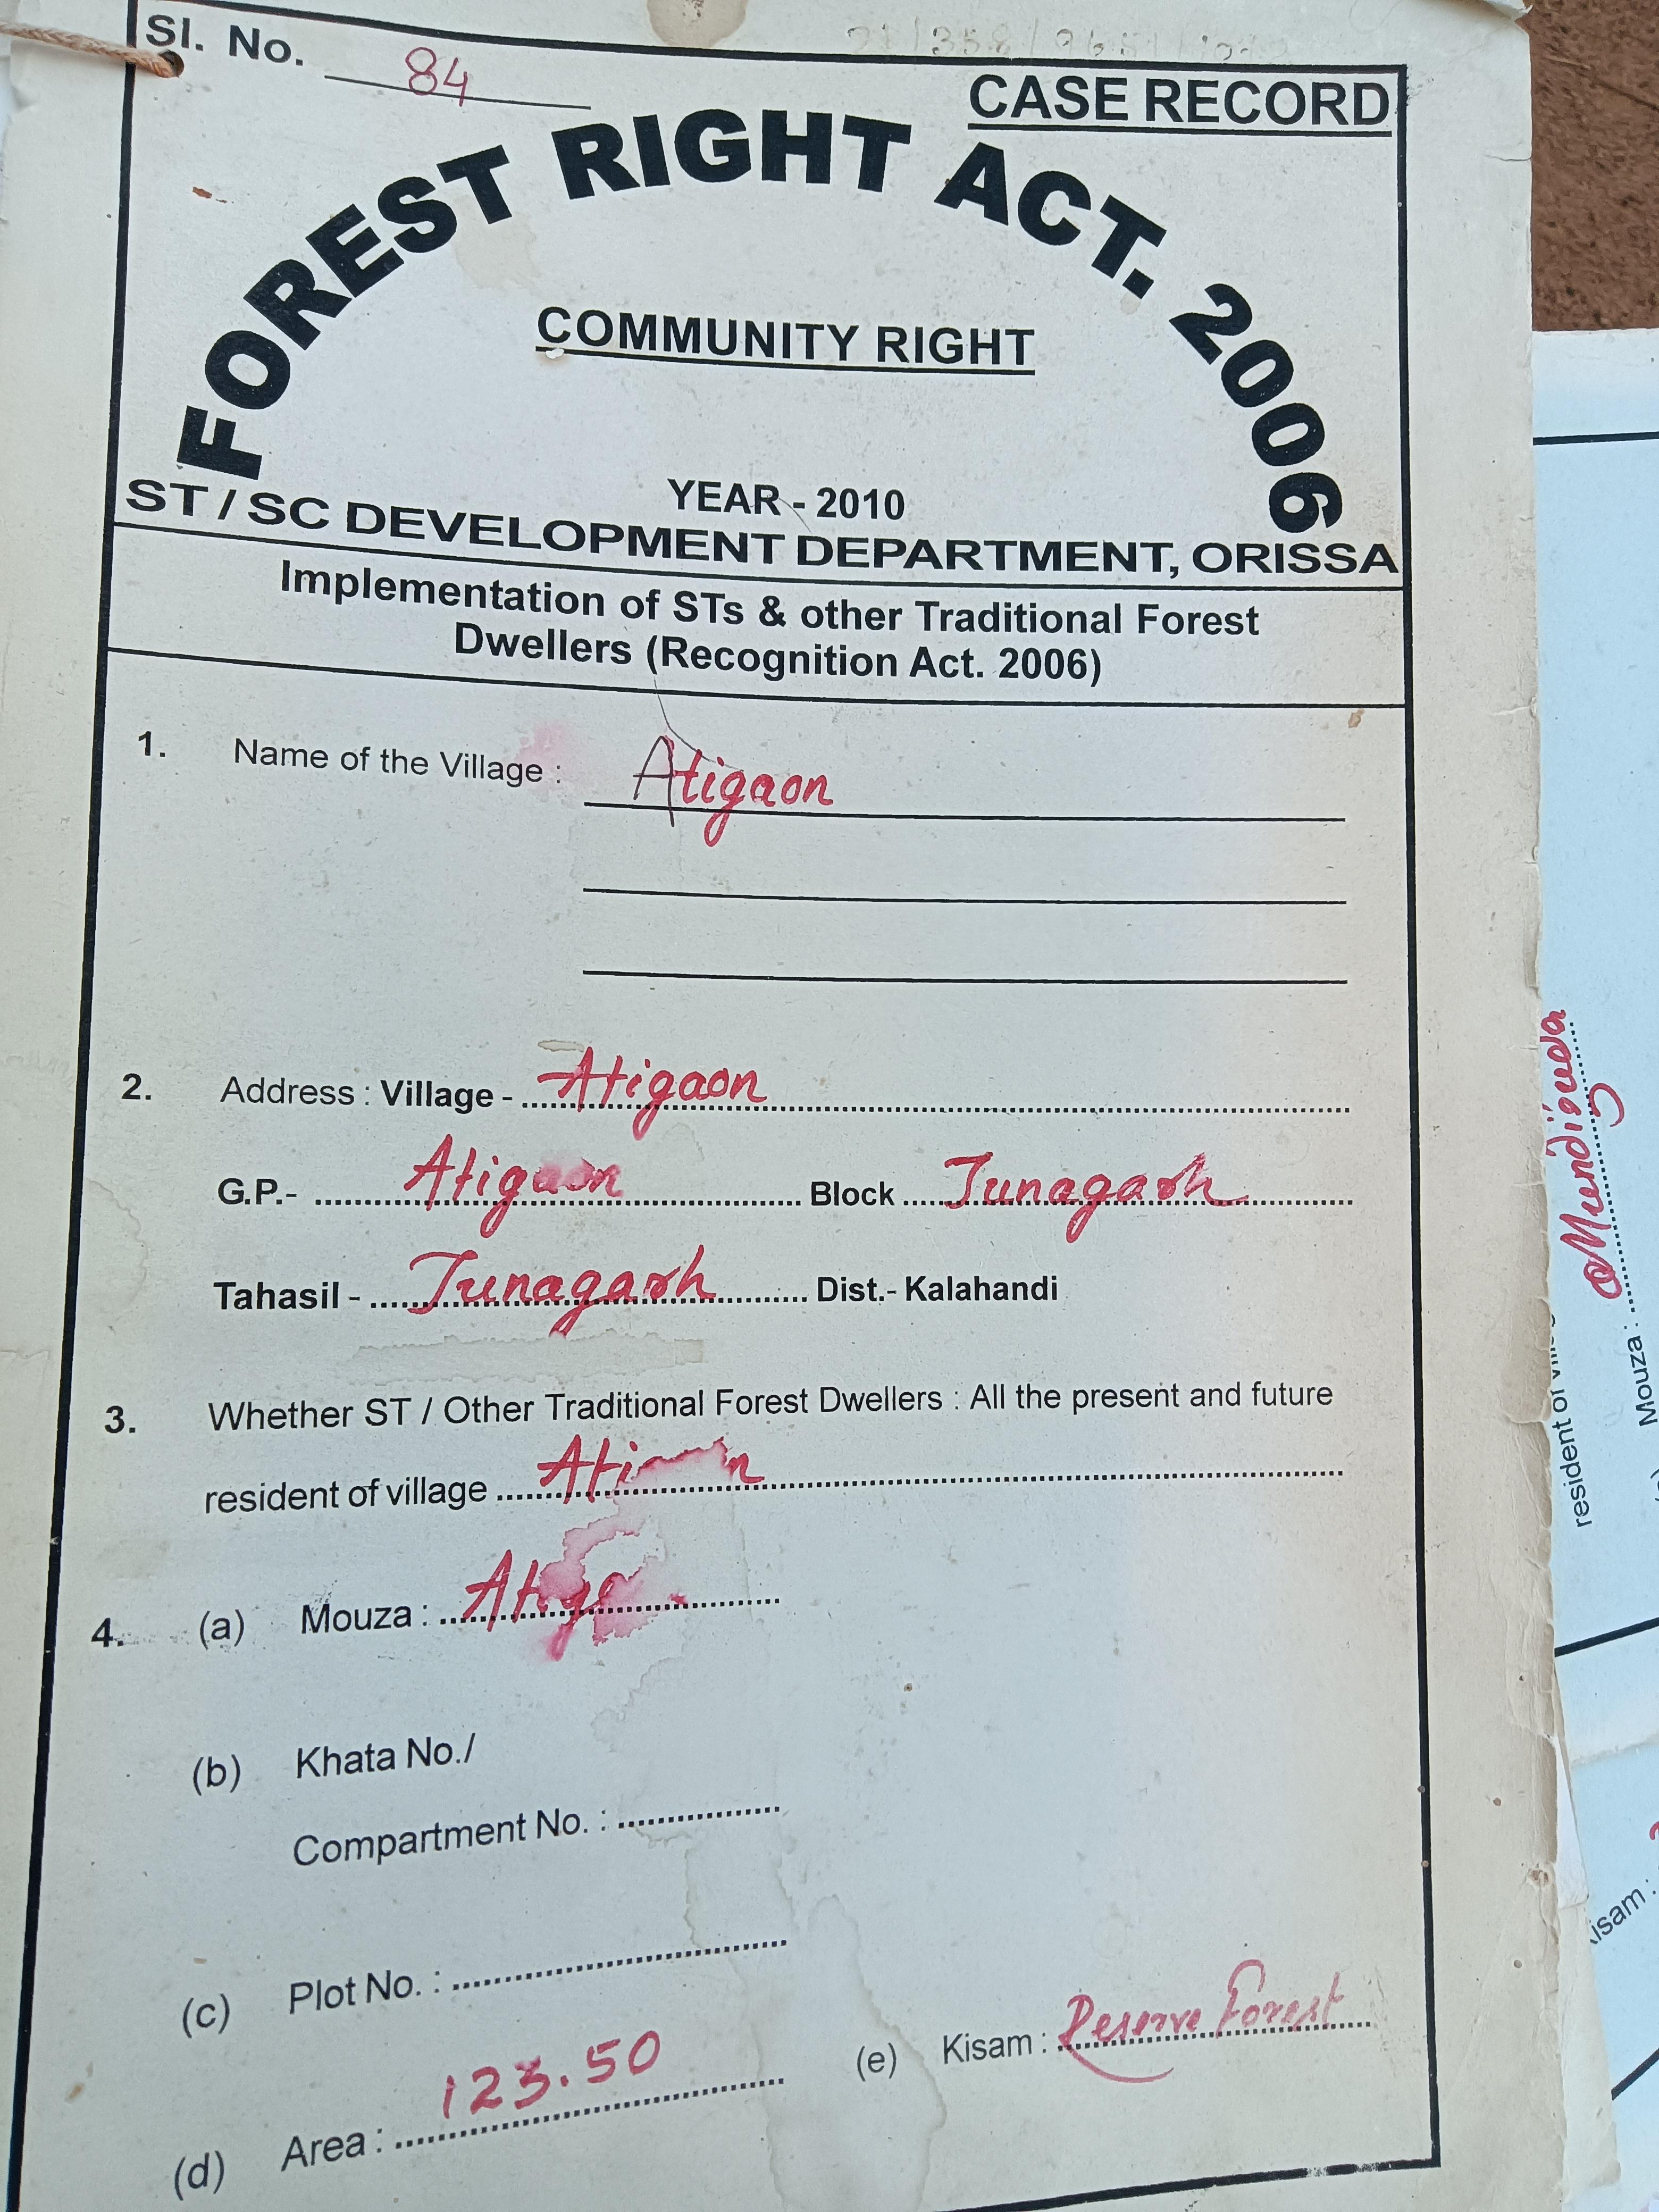 Sl. No. 84
CASE RECORD
FOREST RIGHT ACT. 2006
COMMUNITY RIGHT
YEAR - 2010
ST / SC DEVELOPMENT DEPARTMENT, ORISSA
Implementation of STs & other Traditional Forest
Dwellers (Recognition Act. 2006)
1. Name of the Village : Atigaon
2. Address : Village - Atigaon
G.P.- Atigaon Block Junagarh
Tahasil - Junagarh Dist.- Kalahandi
3. Whether ST / Other Traditional Forest Dwellers : All the present and future
resident of village
4. (a) Mouza :
(b) Khata No./
Compartment No. :
(c) Plot No. :
(d) Area : 123.50
(e) Kisam : Reserve Forest
resident of
Mouza :